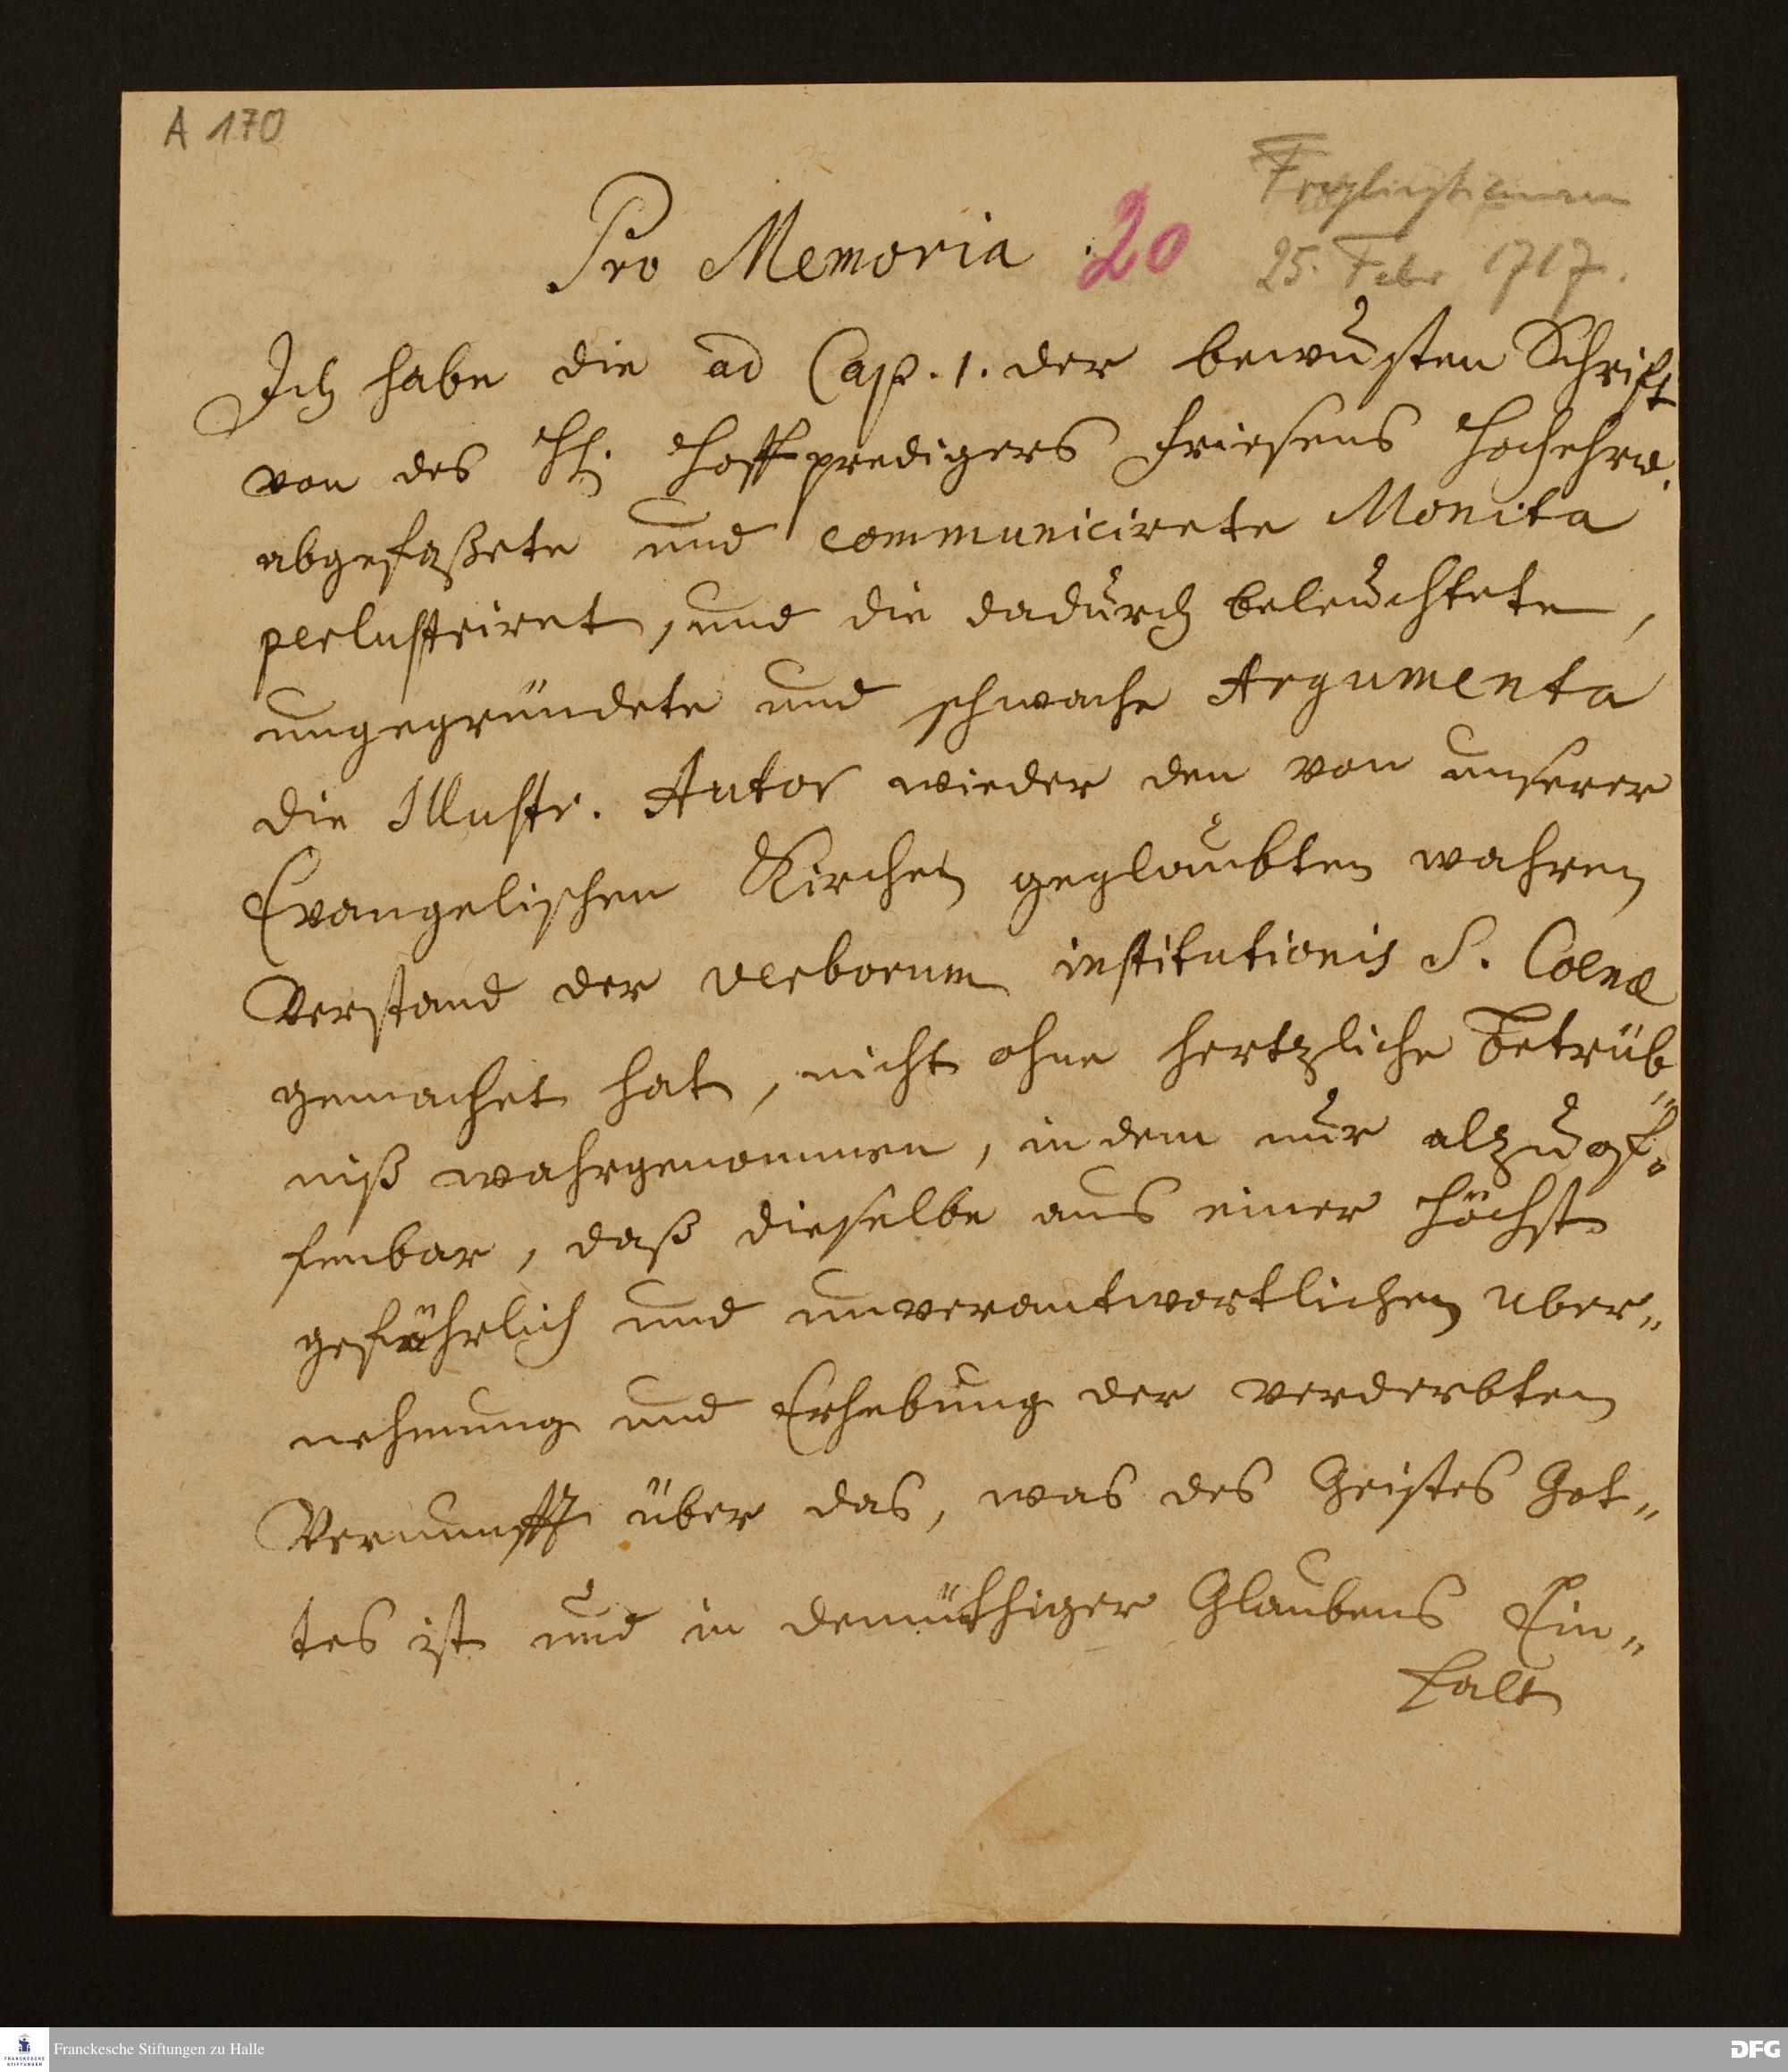 A 170
Freylinghausen
25. Febr 1717.
Pro Memoria 20
Ich habe die ad Cap. 1. der bewusten Schrift
von des H. Hoffpredigers Friesens Hochehrw.
abgefaßete und communicirete Monita
perlustriret, und die dadurch beleuchtete,
ungegründete und schwache Argumenta
die Illustr. Autor wieder den von unserer
Evangelischen Kirchen geglaubten wahren
Verstand der verborum institutionis S. Coenæ
gemachet hat, nicht ohne hertzliche Betrüb„
niß wahrgenommen, in dem nur alzu of„
fenbar, daß dieselbe aus einer höchst
gefährlich und unverantwortlichen Uber„
nehmung und Erhebung der verderbten
Vernunfft über das, was des Geistes Got„
tes ist und in demüthiger Glaubens Ein„
falt
Franckesche Stiftungen zu Halle
FRANCKESCHE STIFTUNGEN
DFG